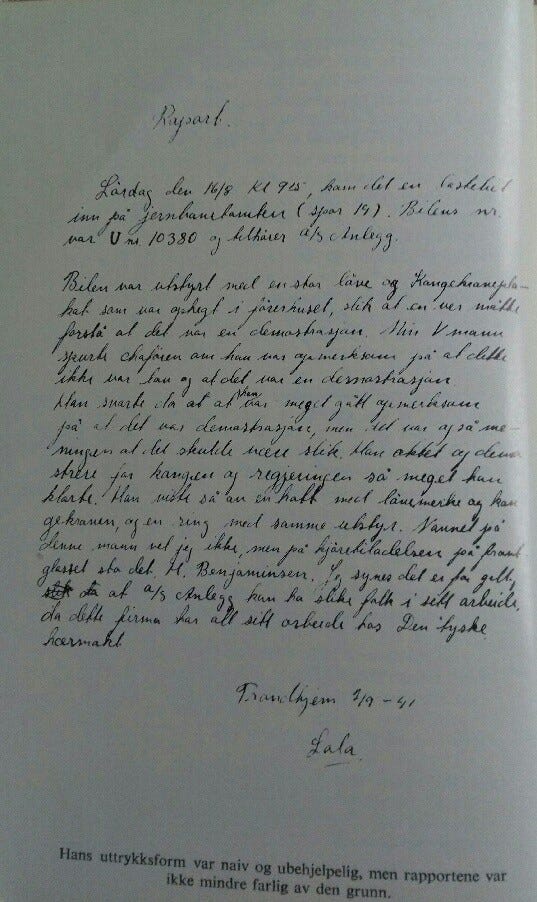 Raport.
Lördag den 16/8 Kl 9 15, kom det en lastebil
inn på jernbanetomten (spor 14). Bilens nr.
var U nr 10380 og tilhörer a/s Anlegg.
Bilen var utstyrt med en stor löve og Kongekronepla-
kat som var ophegt i förerhuset, slik at en ver måtte
forstå at det var en demostrasjon. Min V mann
spurte chafören om han var opmerksom på at dette
ikke var lov og at det var en demostrasjon
Han svarte da at at han var meget gått opmerksom
på at det var demostrasjon, men det var også me-
ningen at det skulde være slik. Han aktet og demo
strere for kongen og regjeringen så meget han
klarte. Han viste så en hatt med lövemerke og kon
gekronen, og en ring med samme utstyr. Navnet på
denne mann vet jeg ikke, men på kjöretiladelsen på front
glasset sto det. H. Benjaminsen. Jeg synes det er for galt,
at a/s Anlegg kan ha slike folk i sitt arbeide,
da dette firma har alt sitt arbeide hos Den tyske
hærmakt
Trondhjem 2/9 - 41
Lola
Hans uttrykksform var naiv og ubehjelpelig, men rapportene var
ikke mindre farlig av den grunn.